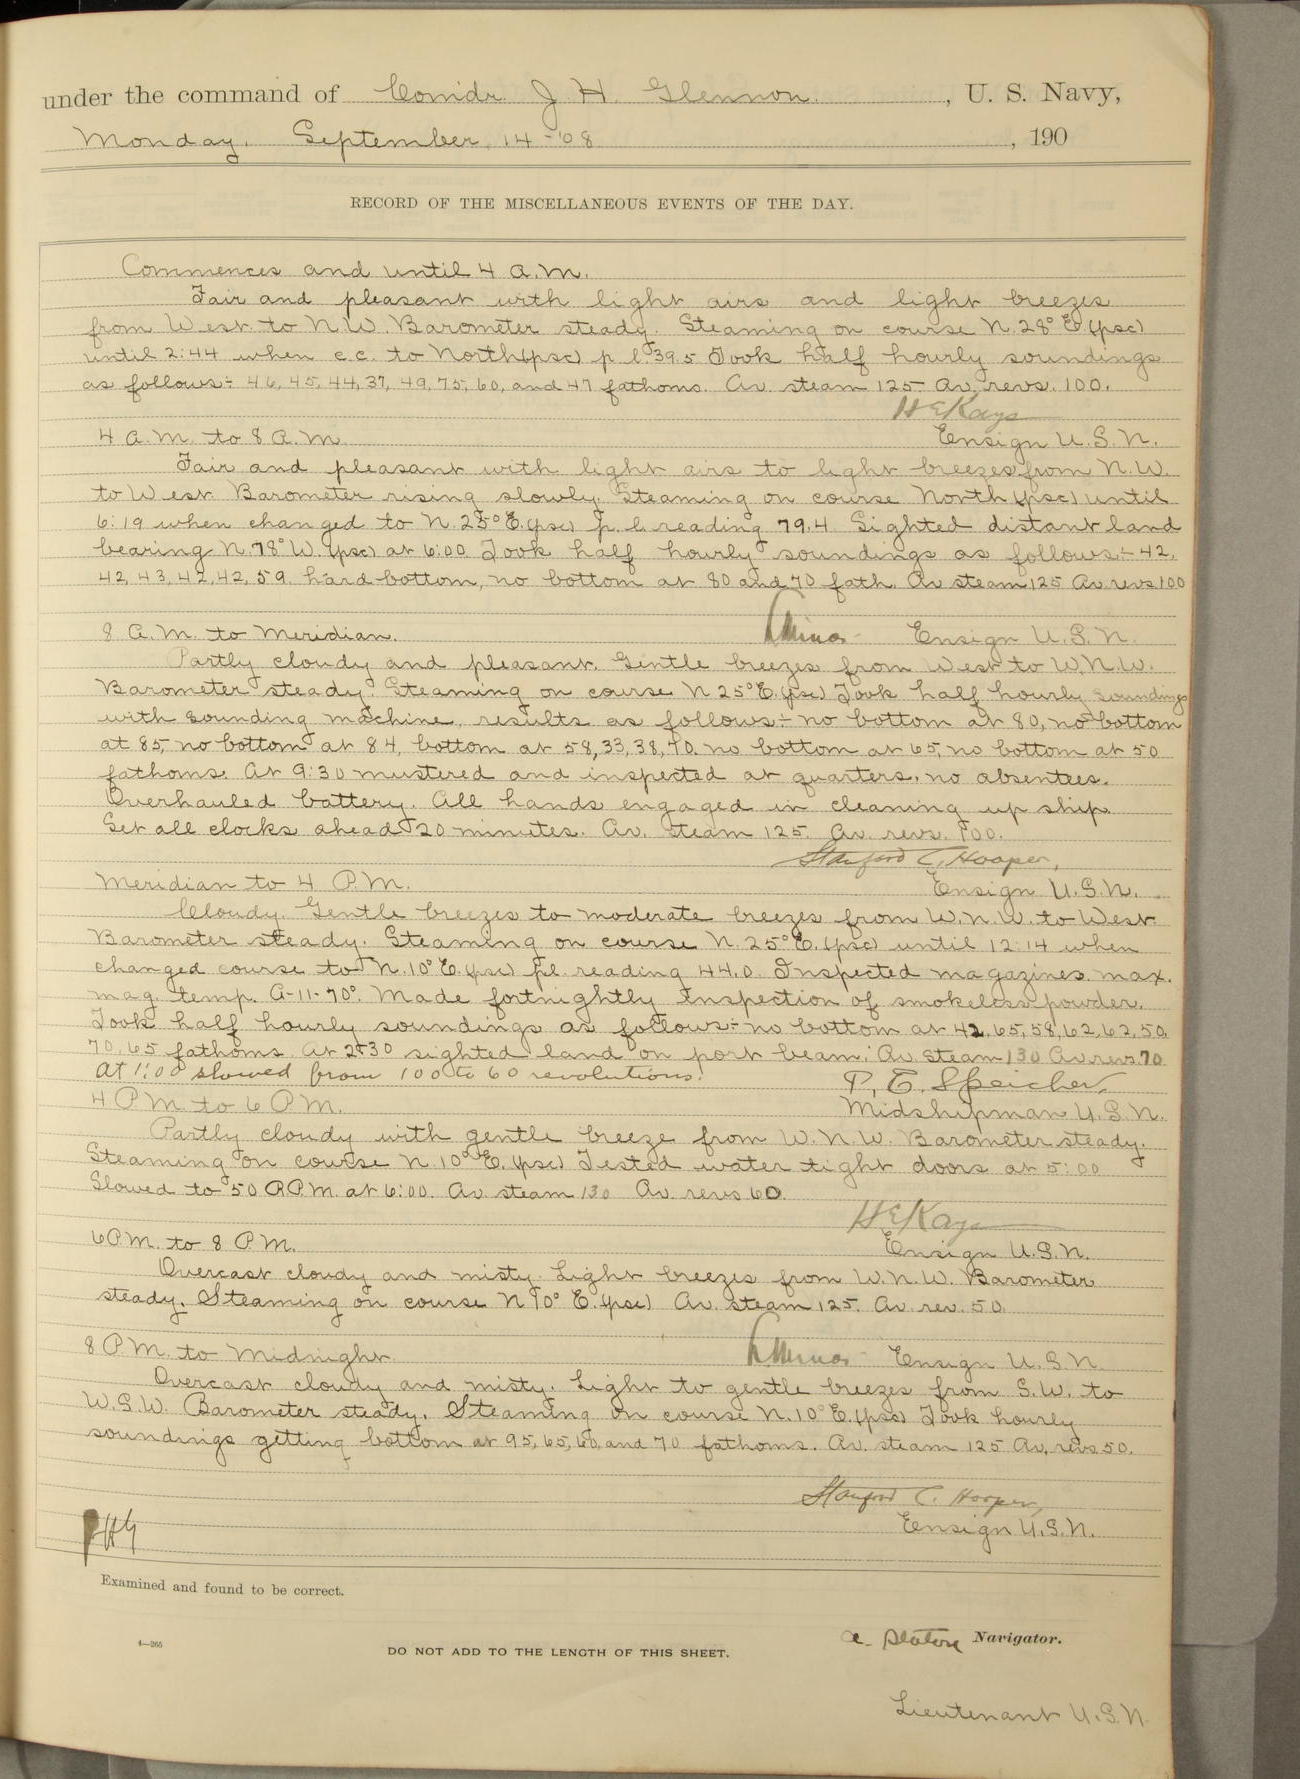 under the command of Comdr. J. H. Glennon. , U. S. Navy,
Monday. September 14-'08 , 190
RECORD OF THE MISCELLANEOUS EVENTS OF THE DAY.
Commences and until 4 A.M.
Fair and pleasant with light airs and light breezes
from West to N.W. Barometer steady. Steaming on course N. 28° E. (psc)
until 2:44 when c.c. to North (psc) p. l. 39.5 Took half hourly soundings
as follows:- 46, 45, 44, 37, 49, 75, 60, and 47 fathoms. Av. steam 125- Av. revs. 100.
H E Kays
4 A.M. to 8 A.M. Ensign U.S.N.
Fair and pleasant with light airs to light breezes from N.W.
to West. Barometer rising slowly. Steaming on course North (psc) until
6:19 when changed to N. 25° E. (psc) p. l. reading 79.4. Sighted distant land
bearing N. 78° W. (psc) at 6:00. Took half hourly soundings as follows:- 42,
42, 43, 42, 42, 59. hard bottom, no bottom at 80 and 70 fath. Av. steam 125 Av. revs. 100
8 A.M. to Meridian. Ensign U.S.N.
Partly cloudy and pleasant. Gentle breezes from West to W.N.W.
Barometer steady. Steaming on course N 25° E. (psc) Took half hourly soundings
with sounding machine, results as follows:- no bottom at 80, no bottom
at 85, no bottom at 84, bottom at 58, 33, 38, 70. no bottom at 65, no bottom at 50
fathoms. At 9:30 mustered and inspected at quarters, no absentees.
Overhauled battery. All hands engaged in cleaning up ship.
Set all clocks ahead 20 minutes. Av. steam 125. Av. revs. 100.
Stanford C. Hooper,
Meridian to 4 P.M. Ensign U.S.N.
Cloudy. Gentle breezes to moderate breezes from W.N.W. to West.
Barometer steady. Steaming on course N. 25° E. (psc) until 12:14 when
changed course to N. 10° E. (psc) p.l. reading 44.0. Inspected magazines. max.
mag. temp. A-11-70°. Made fortnightly inspection of smokeless powder.
Took half hourly soundings as follows:- no bottom at 42, 65, 58, 62, 62, 50,
70, 65 fathoms. At 2:30 sighted land on port beam. Av. steam 130 Av. revs 70
At 1:00 slowed from 100 to 60 revolutions. P. E. Speicher,
4 P.M. to 6 P.M. Midshipman U.S.N.
Partly cloudy with gentle breeze from W.N.W. Barometer steady.
Steaming on course N. 10° E. (psc) Tested water tight doors at 5:00
Slowed to 50 R.P.M. at 6:00. Av. steam 130 Av. revs 60.
H E Kays
6 P.M. to 8 P.M. Ensign U.S.N.
Overcast cloudy and misty. Light breezes from W.N.W. Barometer
steady. Steaming on course N 10° E. (psc) Av. steam 125. Av. rev. 50.
8 P.M. to Midnight. Ensign U.S.N.
Overcast cloudy and misty. Light to gentle breezes from S.W. to
W.S.W. Barometer steady. Steaming on course N. 10° E. (psc) Took hourly
soundings getting bottom at 95, 65, 60, and 70 fathoms. Av. steam 125 Av. revs 50.
Stanford C. Hooper,
Ensign U.S.N.
JHG
Examined and found to be correct.
4—265
DO NOT ADD TO THE LENGTH OF THIS SHEET.
A. Staton Navigator.
Lieutenant U.S.N.